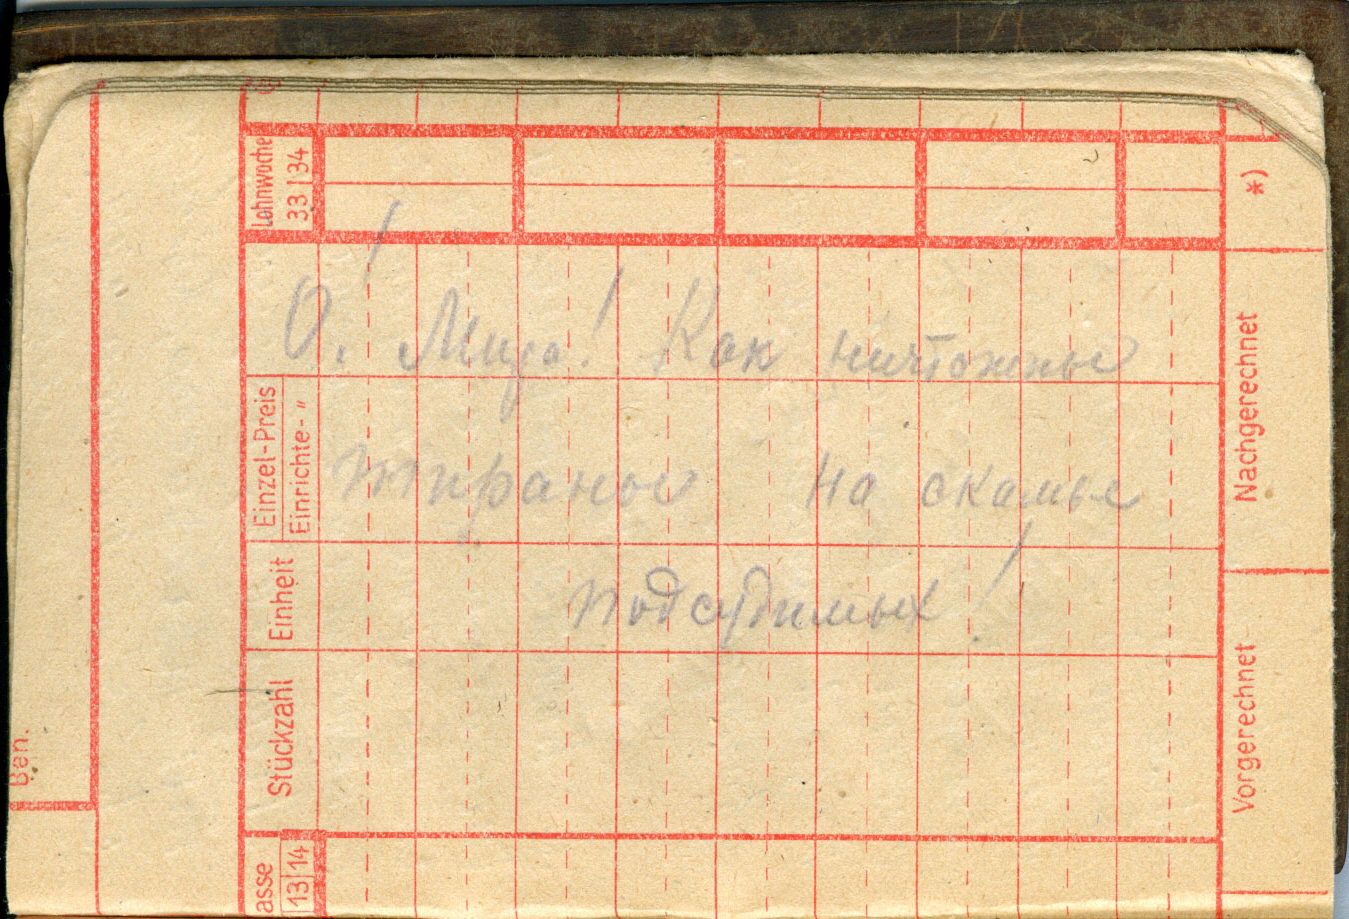 О! Мира! Как ничтожны
тираны на скамье
подсудимых!
Lohnwoche
33 34
Einzel-Preis
Einrichte- "
Einheit
Stückzahl
asse
13 14
*)
Nachgerechnet
Vorgerechnet
Ben.